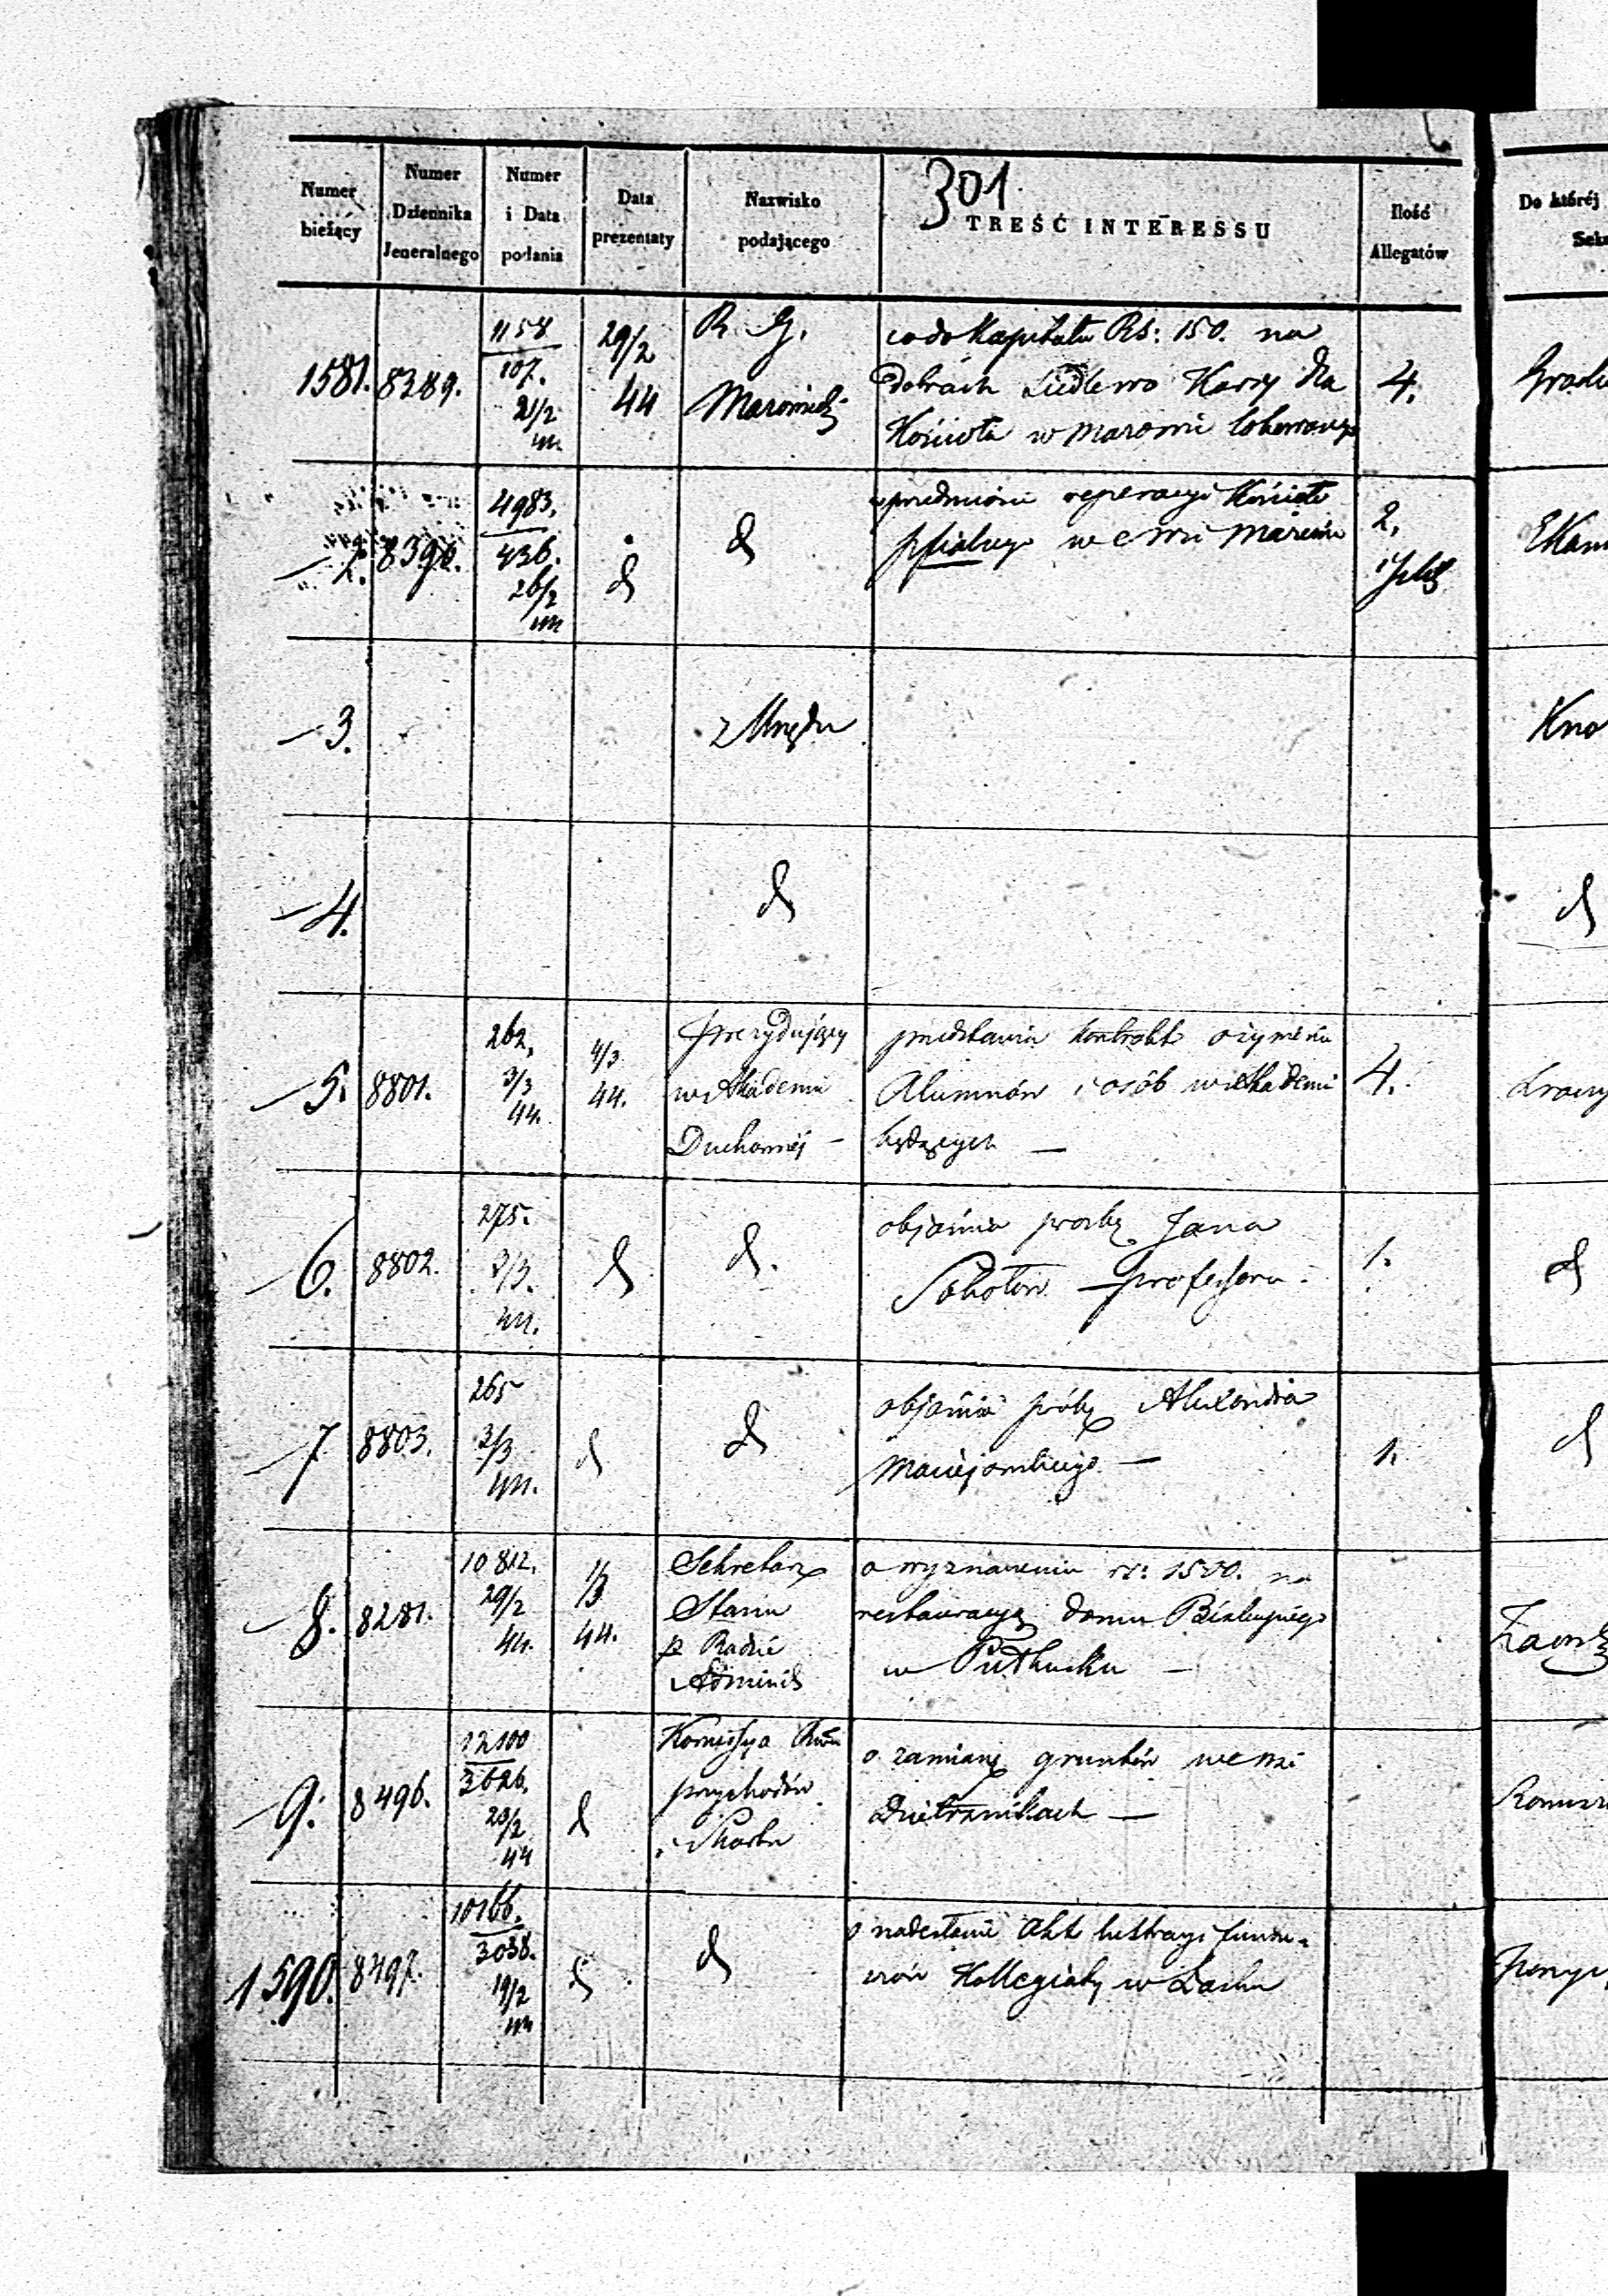 301
Numer bieżący
Numer Dziennika Jeneralnego
Numer i Data podania
Data prezentaty
Nazwisko podającego
TREŚĆ INTERESSU
Ilość Allegatów
Do której
1581. 8389. 1158 107. 21/2 44 29/2 44 R. G.
co do Kapitału Rs: 150. na
dobrach Kary dla 4.
Kościoła w
2. 8390. 4983. 436. 26/2 44 d d
w przedmiocie reperacyi Kościoła 2.
we wsi
3. z Urzędu
4. d d
5. 8801. 262, 3/3 44. 4/3 44.
Prezydujący w Akademii Duchownej —
przedstawia kontrakt o żywienie
Alumnów i osób w Akademii 4.
będących —
6. 8802. 275. 3/3. 44. d d.
objaśnia prośbę Jana
professora 1. d
7 8803. 265 3/3 44. d d
objaśnia prośbę Alexandra
Maciejowskiego — 1. d
8. 8281. 10812. 29/2 44. 1/3 44.
Sekretarz Stanu p Radzie Adminis
o wyznaczenie rs: 1500. na
restauracyą domu
w Pułtusku —
9. 8496. 12100 3626. 29/2 44 d
Komissya
przychodów
i Skarbu
o zamianę gruntów we wsi
Dzietrznikach —
1590. 8497. 10166. 3038. 19/2 44 d d
o nadesłanie Akt lustracyi fundu-
szów Kollegiaty w Łasku